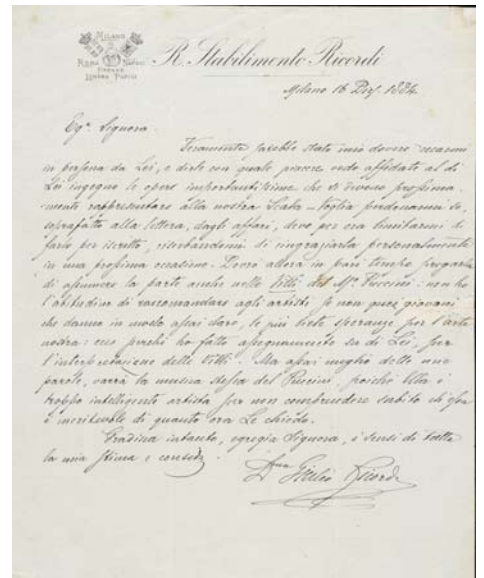 MILANO
ROMA NAPOLI
FIRENZE
LONDRA PARIGI
R. Stabilimento Ricordi
Milano 16 Dic. 1884
Eg.ª Signora
Veramente sarebbe stato mio dovere recarmi
in persona da Lei, e dirle con quale piacere vedo affidate al di
Lei ingegno le opere importantissime che si devono prossima-
mente rappresentare alla nostra Scala - Voglia perdonarmi se,
soprafatto alla lettera, dagli affari, devo per ora limitarmi di
farlo per iscritto, riserbandomi di ringraziarla personalmente
in una prossima occasione. Dovrò allora in pari tempo pregarla
di assumere la parte anche nelle Villi del Mº Puccini: non ho
l'abitudine di raccomandare agli artisti se non quei giovani
che danno in modo assai chiaro, le più liete speranze per l'arte
nostra: ecco perchè ho fatto assegnamento su di Lei, per
l'interpretazione delle Villi. Ma assai meglio delle mie
parole, varrà la musica stessa del Puccini, poichè Ella è
troppo intelligente artista per non comprendere subito ch'essa
è meritevole di quanto ora Le chiedo.
Gradisca intanto, egregia Signora, i sensi di tutta
la mia stima e considz.
Giulio Ricordi